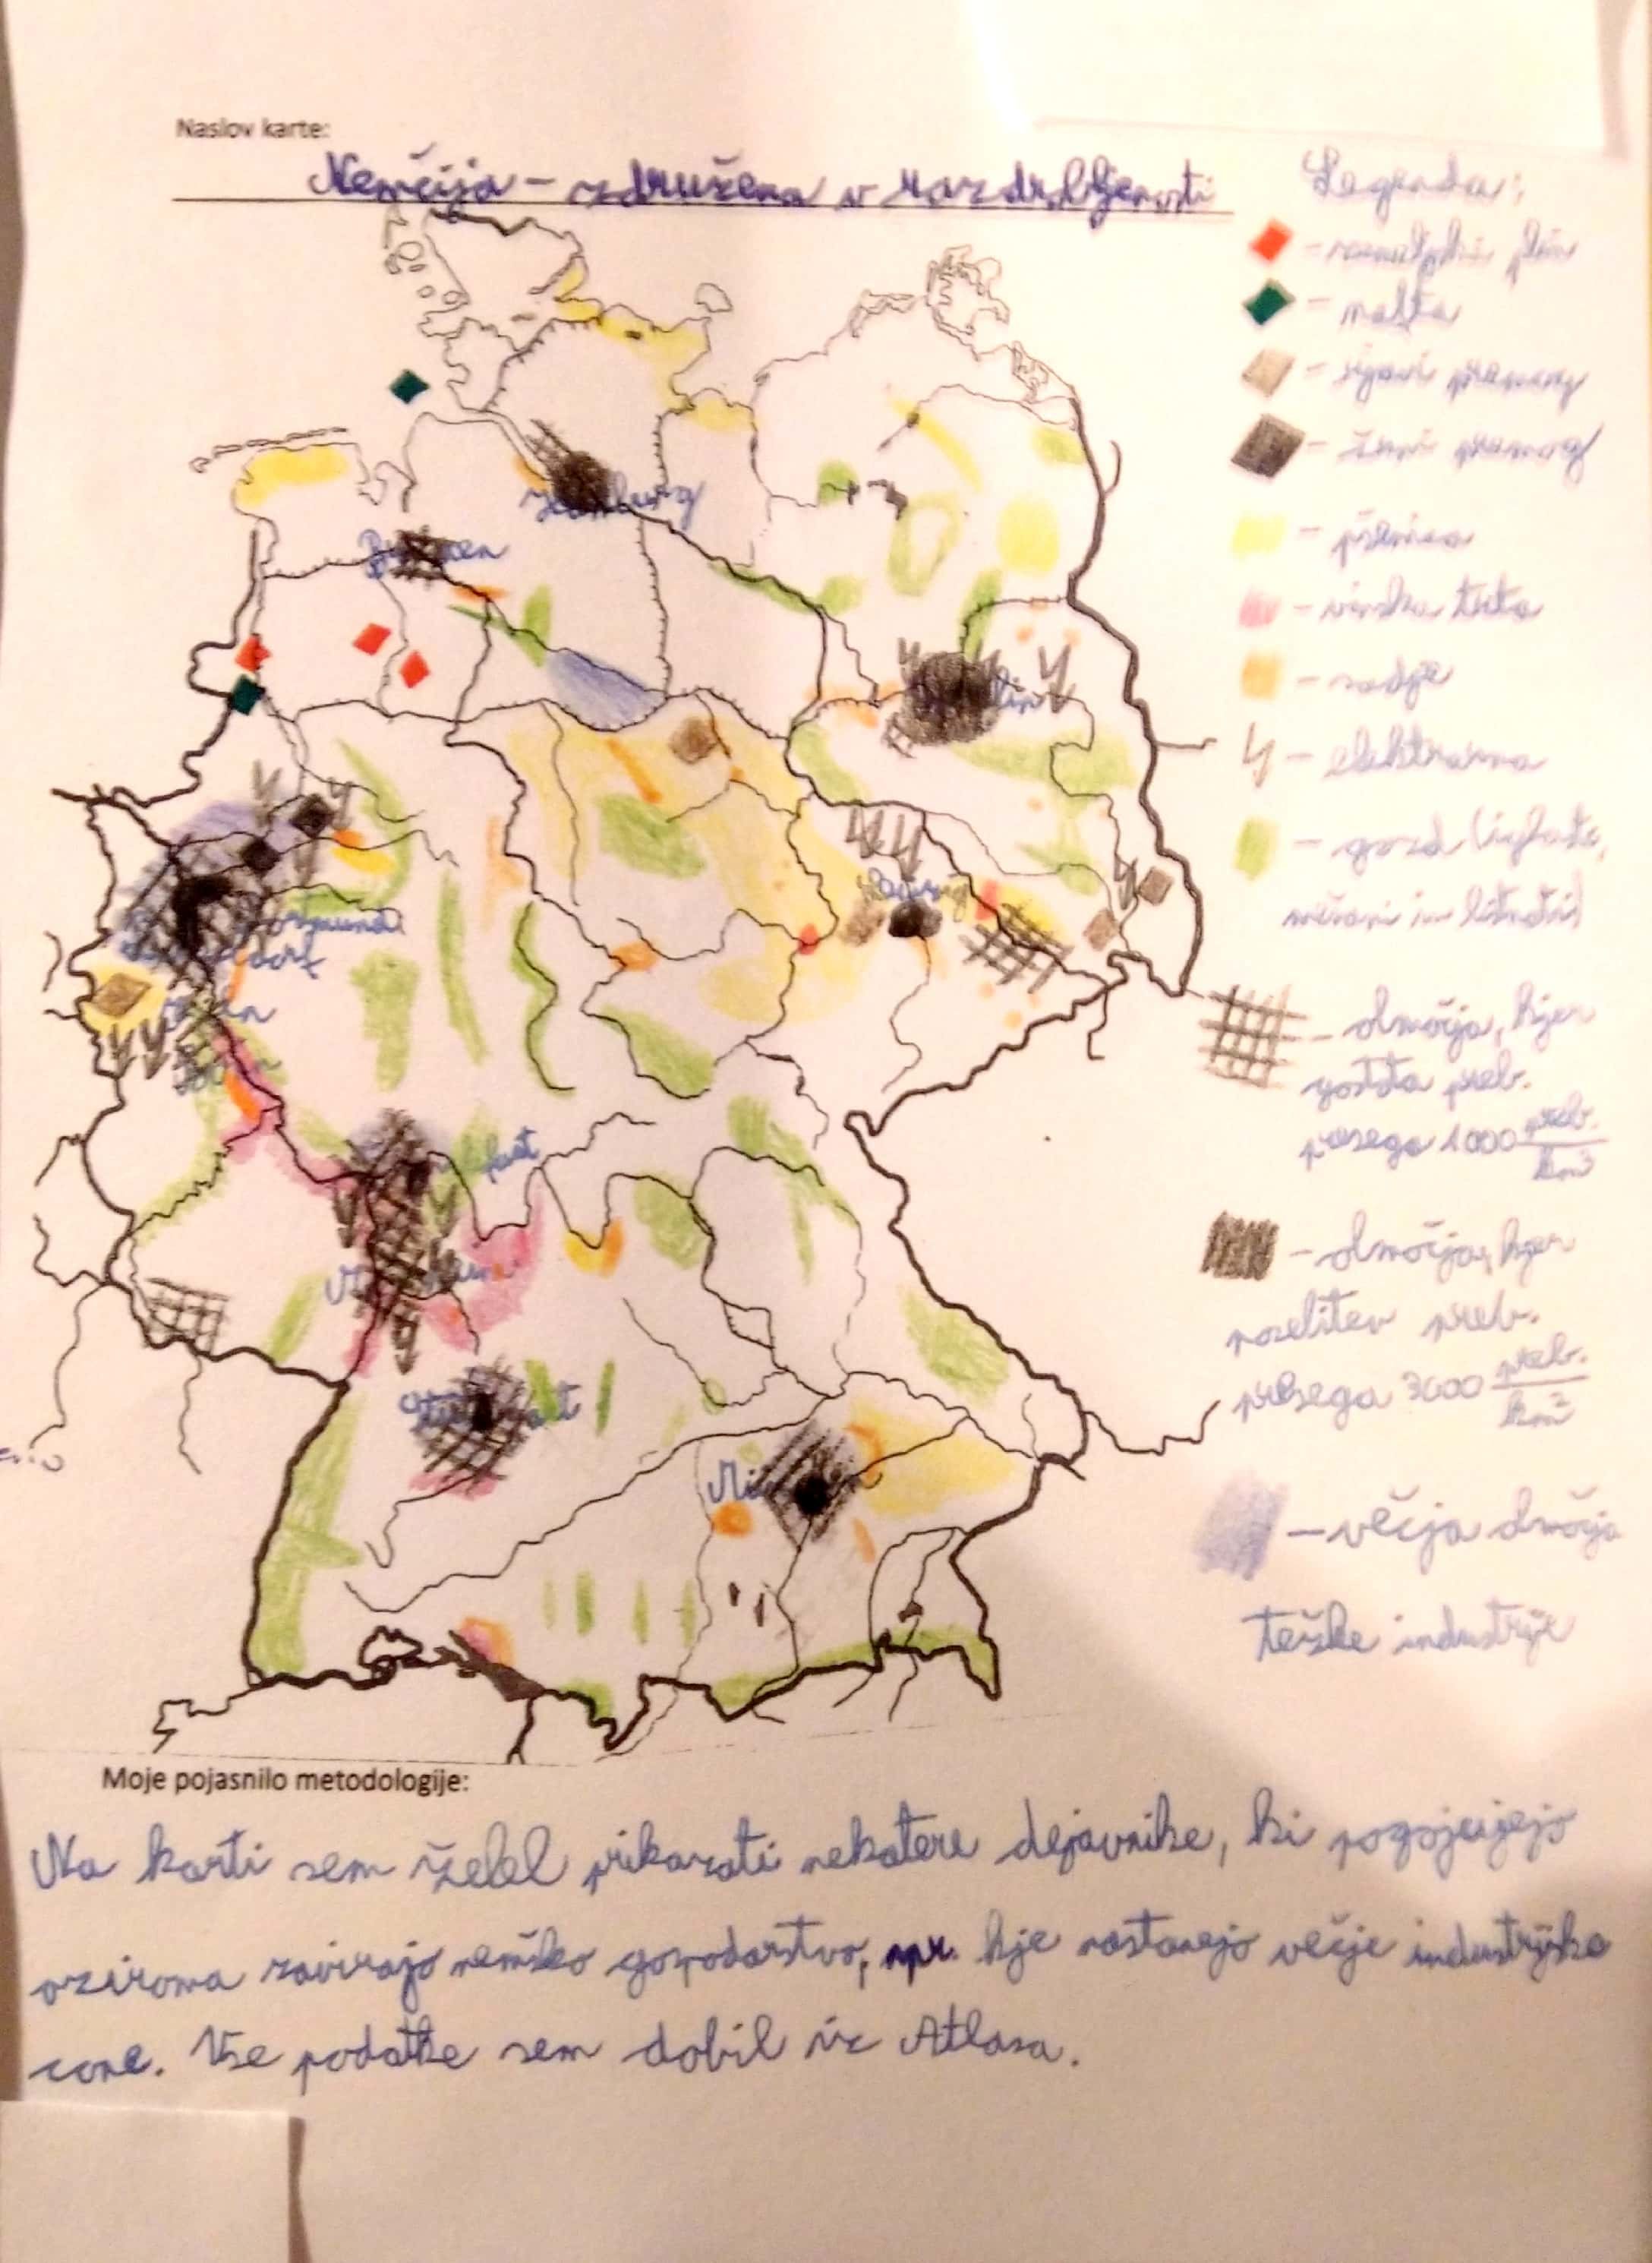 Naslov karte:
Nemčija - združena v razdrobljenosti
Legenda:
- zemeljski plin
- nafta
- rjavi premog
- črni premog
- pšenica
- vinska trta
- sadje
- elektrarna
- gozd (iglasti,
mešani in listnati)
- območja, kjer
gostota preb.
presega 1000 preb./km²
- območja, kjer
poselitev preb.
presega 3000 preb./km²
- večja območja
težke industrije
Hamburg
Bremen
Dortmund
Stuttgart
Moje pojasnilo metodologije:
Na karti sem želel prikazati nekatere dejavnike, ki pogojujejo
oziroma zavirajo nemško gospodarstvo, npr. kje nastanejo večje industrijske
cone. Vse podatke sem dobil iz Atlasa.